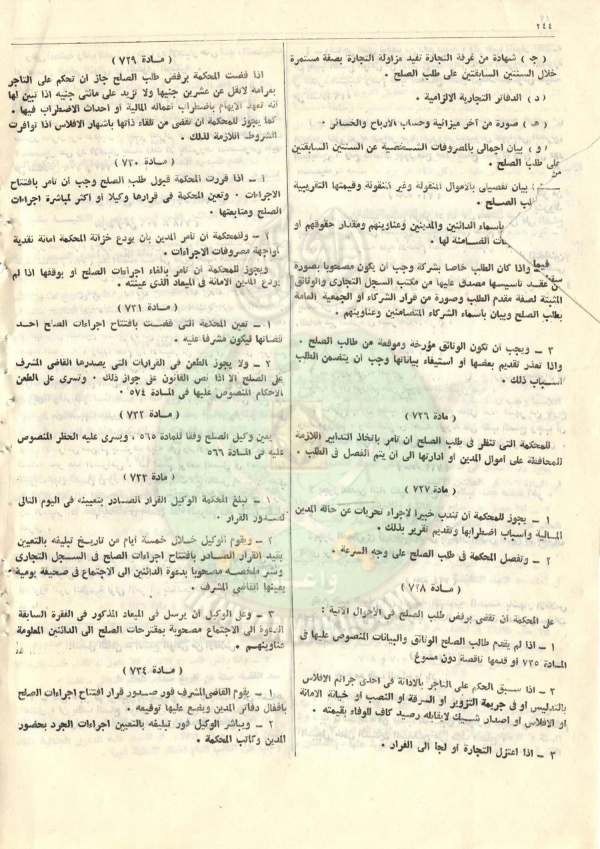 ٢٤٤
( ج ) شهادة من غرفة التجارة تفيد مزاولة التجارة بصفة مستمرة
خلال السنتين السابقتين على طلب الصلح .
( د ) الدفاتر التجارية الالزامية .
( هـ ) صورة من آخر ميزانية وحساب الارباح والخسائر .
( و ) بيان اجمالى بالمصروفات الشخصية عن السنتين السابقتين
على طلب الصلح .
بيان تفصيلى بالاموال المنقولة وغير المنقولة وقيمتها التقريبية
طلب الصلح .
بأسماء الدائنين والمدينين وعناوينهم ومقدار حقوقهم او
الضامنة لها .
واذا كان الطلب خاصا بشركة وجب أن يكون مصحوبا بصورة
من عقد تأسيسها مصدق عليها من مكتب السجل التجارى والوثائق
المثبتة لصفة مقدم الطلب وصورة من قرار الشركاء أو الجمعية العامة
بطلب الصلح وبيان بأسماء الشركاء المتضامنين وعناوينهم .
٣ ــ ويجب أن تكون الوثائق مؤرخة وموقعة من طالب الصلح .
واذا تعذر تقديم بعضها أو استيفاء بياناتها وجب أن يتضمن الطلب
أسباب ذلك .
( مادة ٧٢٦ )
للمحكمة التى تنظر فى طلب الصلح ان تأمر باتخاذ التدابير اللازمة
للمحافظة على أموال المدين او ادارتها الى ان يتم الفصل فى الطلب .
( مادة ٧٢٧ )
١ ــ يجوز للمحكمة أن تندب خبيرا لاجراء تحريات عن حالة المدين
المالية وأسباب اضطرابها وتقديم تقرير بذلك .
٢ ــ وتفصل المحكمة فى طلب الصلح على وجه السرعة .
( مادة ٧٢٨ )
على المحكمة أن تقضى برفض طلب الصلح فى الأحوال الآتية :
١ ــ اذا لم يقدم طالب الصلح الوثائق والبيانات المنصوص عليها فى
المادة ٧٢٥ أو قدمها ناقصة دون مسوغ
٢ ــ اذا سبق الحكم على التاجر بالادانة فى احدى جرائم الافلاس
بالتدليس أو فى جريمة التزوير أو السرقة أو النصب أو خيانة الامانة
أو الافلاس أو اصدار شيك لايقابله رصيد كاف للوفاء بقيمته .
٣ ــ اذا اعتزل التجارة أو لجأ الى الفرار .
( مادة ٧٢٩ )
اذا قضت المحكمة برفض طلب الصلح جاز ان تحكم على التاجر
بغرامة لاتقل عن عشرين جنيها ولا تزيد على مائتى جنيه اذا تبين لها
انه تعمد الايهام باضطراب أعماله المالية أو احداث الاضطراب فيها .
كما يجوز للمحكمة أن تقضى من تلقاء ذاتها باشهار الافلاس اذا توافرت
الشروط اللازمة لذلك .
( مادة ٧٣٠ )
١ ــ اذا قررت المحكمة قبول طلب الصلح وجب ان تأمر بافتتاح
الاجراءات . وتعين المحكمة فى قرارها وكيلا أو أكثر لمباشرة اجراءات
الصلح ومتابعتها .
٢ ــ وللمحكمة أن تأمر المدين بأن يودع خزانة المحكمة امانة نقدية
لمواجهة مصروفات الاجراءات .
ويجوز للمحكمة أن تأمر بالغاء اجراءات الصلح أو بوقفها اذا لم
يودع المدين الأمانة فى الميعاد الذى عينته .
( مادة ٧٣١ )
١ ــ تعين المحكمة التى قضت بافتتاح اجراءات الصلح أحد
قضاتها ليكون مشرفا عليه .
٢ ــ ولا يجوز الطعن فى القرارات التى يصدرها القاضى المشرف
على الصلح الا اذا نص القانون على جواز ذلك . وتسرى على الطعن
الأحكام المنصوص عليها فى المادة ٥٧٤ .
( مادة ٧٣٢ )
يعين وكيل الصلح وفقا للمادة ٥٦٥ ، ويسرى عليه الحظر المنصوص
عليه فى المادة ٥٦٦
( مادة ٧٣٣ )
١ ــ تبلغ المحكمة الوكيل القرار الصادر بتعيينه فى اليوم التالى
لصدور القرار .
٢ ــ ويقوم الوكيل خلال خمسة أيام من تاريخ تبليغه بالتعيين
بقيد القرار الصادر بافتتاح اجراءات الصلح فى السجل التجارى
ونشر ملخصه مصحوبا بدعوة الدائنين الى الاجتماع فى صحيفة يومية
يعينها القاضى المشرف .
٣ ــ وعلى الوكيل أن يرسل فى الميعاد المذكور فى الفقرة السابقة
الدعوة الى الاجتماع مصحوبة بمقترحات الصلح الى الدائنين المعلومة
عناوينهم .
( مادة ٧٣٤ )
١ ــ يقوم القاضى المشرف فور صدور قرار افتتاح اجراءات الصلح
باقفال دفاتر المدين ويضع عليها توقيعه .
٢ ــ ويباشر الوكيل فور تبليغه بالتعيين اجراءات الجرد بحضور
المدين وكاتب المحكمة .